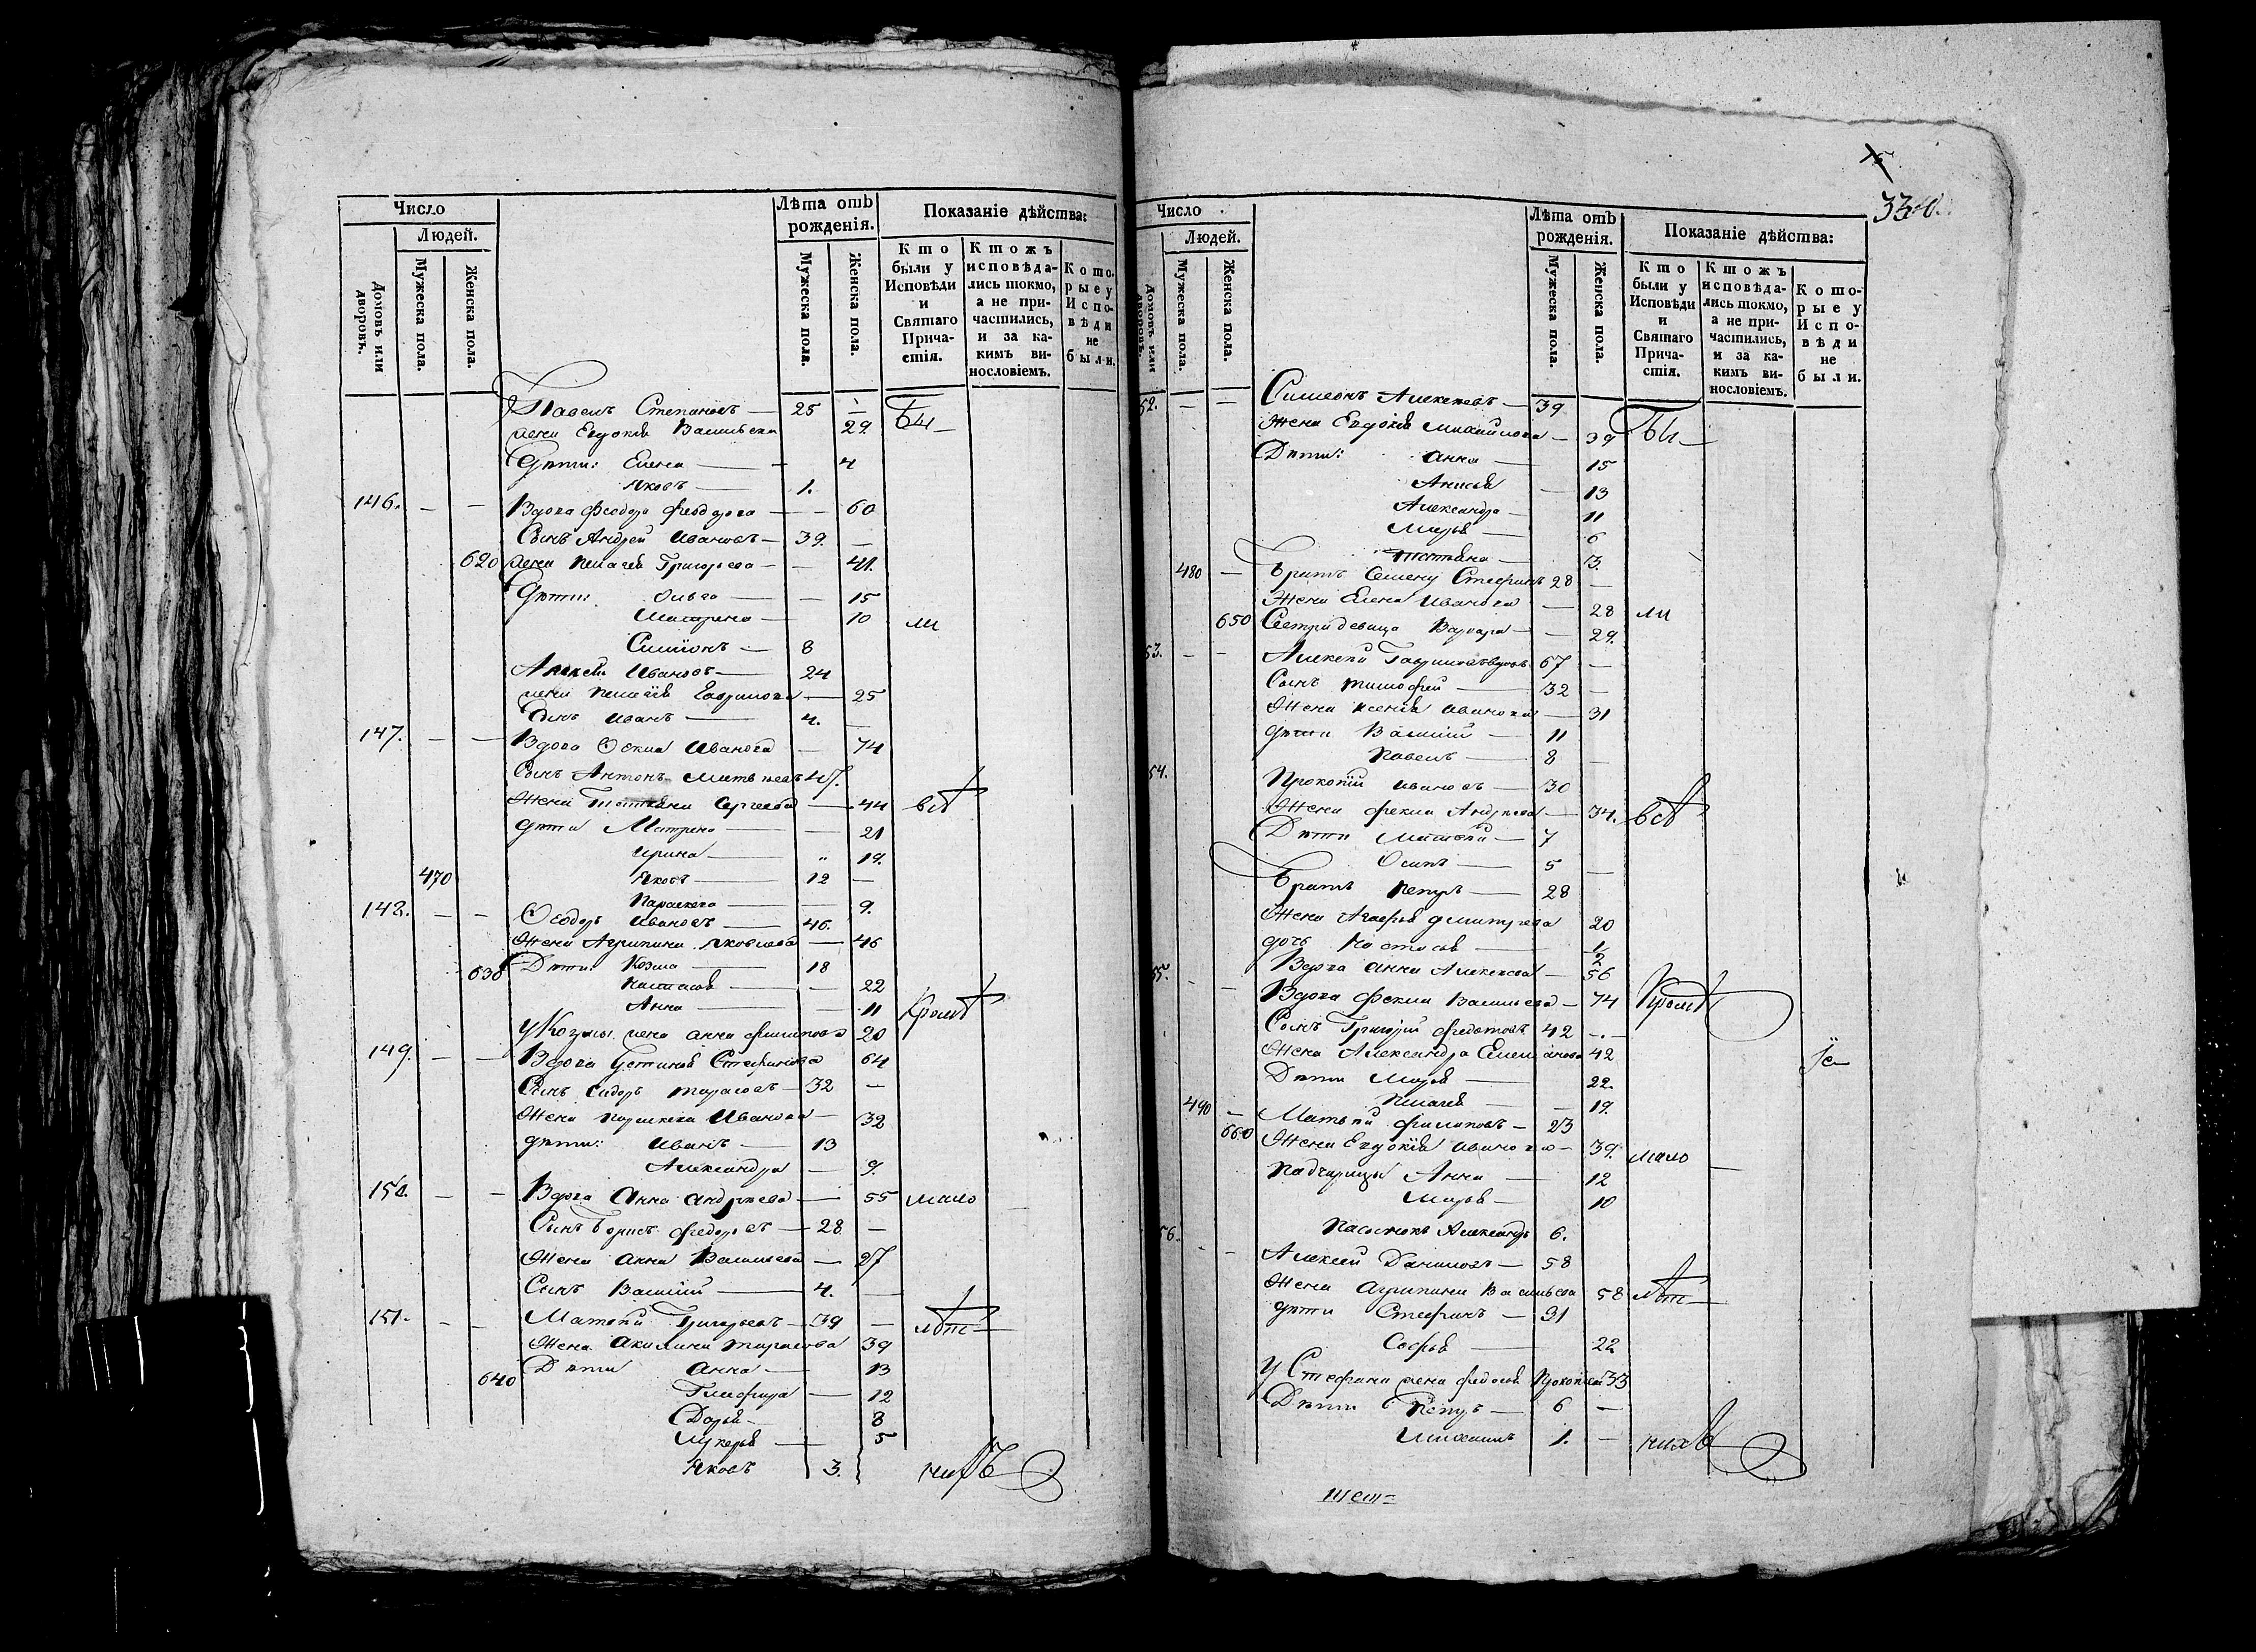 Число
Людей.
Домовъ или дворовъ.
Мужеска пола.
Женска пола.
Лѣта отъ рожденія.
Мужеска пола.
Женска пола.
Показаніе дѣйства:
Кто были у Исповѣди и Святаго Причастія.
Ктожъ исповѣдались токмо, а не причастились, и за какимъ винословіемъ.
Которые у Исповѣди не были.
Павелъ Степановъ — 25 Бы
жена Евдокія Васильева 29
Дѣти: Елена — 4
Яковъ — 1.
146. — — Вдова Феодора Феодорова — 60
Сынъ Андрей Ивановъ — 39.
620 жена Пелагея Григорьева — 41.
Дѣти: Ольга — 15
Матрена — 10 ли
Симионъ — 8
Алексей Ивановъ — 24
жена Пелагея Гаврилова — 25
Сынъ Иванъ — 4.
147. — — Вдова Фекла Иванова — 74
Сынъ Антонъ Матвеевъ 47.
Жена Татьяна Сергеева — 44 всѣ
дѣти Матрена — 21
Ирина — 19.
470 Яковъ — 12 —
Параскева — 9.
148. — — Феодоръ Ивановъ — 46.
Жена Агрипина Яковлева — 46
630 Дѣти: Козма — 18
Настасья — 22
Анна — 11 Кромѣ
у Козмы жена Анна Филипова 20
149. — — Вдова Устинья Стефанова 64
Сынъ Сидоръ Тарасовъ — 32 —
Жена Параскева Иванова — 32
дѣти: Иванъ — 13
Александра — 9.
150. — — Вдова Анна Андреева — 55 мало
Сынъ Борисъ Федоровъ — 28. —
Жена Анна Васильева — 27
Сынъ Василій — 4. —
151. — — Матвѣй Григорьевъ — 39 — лѣт
Жена Акилина Тарасова 39
640 Дѣти Анна — 13
Глафира — 12
Дарья — 8
Лукерья — 5
Яковъ 3. нихъ
330.
Число
Людей.
Домовъ или дворовъ.
Мужеска пола.
Женска пола.
Лѣта отъ рожденія.
Мужеска пола.
Женска пола.
Показаніе дѣйства:
Кто были у Исповѣди и Святаго Причастія.
Ктожъ исповѣдались токмо, а не причастились, и за какимъ винословіемъ.
Которые у Исповѣди не были.
52. — — Симеонъ Алексеевъ — 39
Жена Евдокія Михайлова — 39 Бы
Дѣти: Анна — 15
Анисья — 13
Александра — 11
Марья — 6
Татьяна — 3.
480 — Братъ Семену Стефанъ 28 —
Жена Елена Иванова — 28 ли
650 Сестра девица Варвара — 29.
53. — — Алексей Гавриловъ вдовъ 67 —
Сынъ Тимофей — 32 —
Жена Ксенія Иванова — 31
дѣти Василий — 11
Павелъ — 8 —
54. Прокопій Ивановъ — 30
Жена Фекла Андреева — 34. всѣ
Дѣти Матвѣй — 7
Осипъ — 5 —
Братъ Петръ — 28
Жена Агафья Дмитрева 20
дочь Настасья — 1/2
Вдова Анна Алексеева — 56
55. — — Вдова Фекла Васильева — 74 Кромѣ
Сынъ Григорій Федотовъ 42 —
Жена Александра Емельянова 42
Дѣти Марья — 22.
Пелагея — 19.
490 — Матвѣй Филиповъ — 23
660 Жена Евдокія Иванова — 39. мало
Падчерицы Анна — 12
Марья — 10
Пасынокъ Александръ 6.
56. — Алексей Даниловъ — 58
Жена Агрипина Васильева 58 лѣт
дѣти Стефанъ — 31
Софья — 22
у Стефана жена Федосья Прокопьева 33
Дѣти Петръ — 6 —
Михаилъ 1. — нихъ